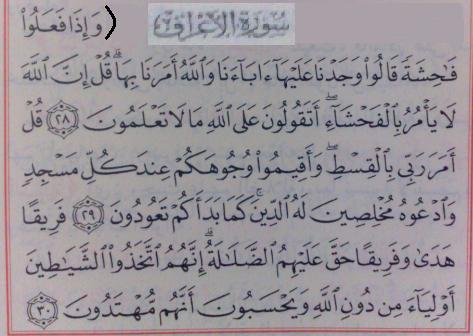 سُورَةُ الْأَعْرَافِ ) وَإِذَا فَعَلُواْ
فَٰحِشَةً قَالُواْ وَجَدْنَا عَلَيْهَآ ءَابَآءَنَا وَٱللَّهُ أَمَرَنَا بِهَا ۗ قُلْ إِنَّ ٱللَّهَ
لَا يَأْمُرُ بِٱلْفَحْشَآءِ ۖ أَتَقُولُونَ عَلَى ٱللَّهِ مَا لَا تَعْلَمُونَ ٢٨ قُلْ
أَمَرَ رَبِّى بِٱلْقِسْطِ ۖ وَأَقِيمُواْ وُجُوهَكُمْ عِندَ كُلِّ مَسْجِدٍ
وَٱدْعُوهُ مُخْلِصِينَ لَهُ ٱلدِّينَ ۚ كَمَا بَدَأَكُمْ تَعُودُونَ ٢٩ فَرِيقًا
هَدَىٰ وَفَرِيقًا حَقَّ عَلَيْهِمُ ٱلضَّلَٰلَةُ ۗ إِنَّهُمُ ٱتَّخَذُواْ ٱلشَّيَٰطِينَ
أَوْلِيَآءَ مِن دُونِ ٱللَّهِ وَيَحْسَبُونَ أَنَّهُم مُّهْتَدُونَ ٣٠